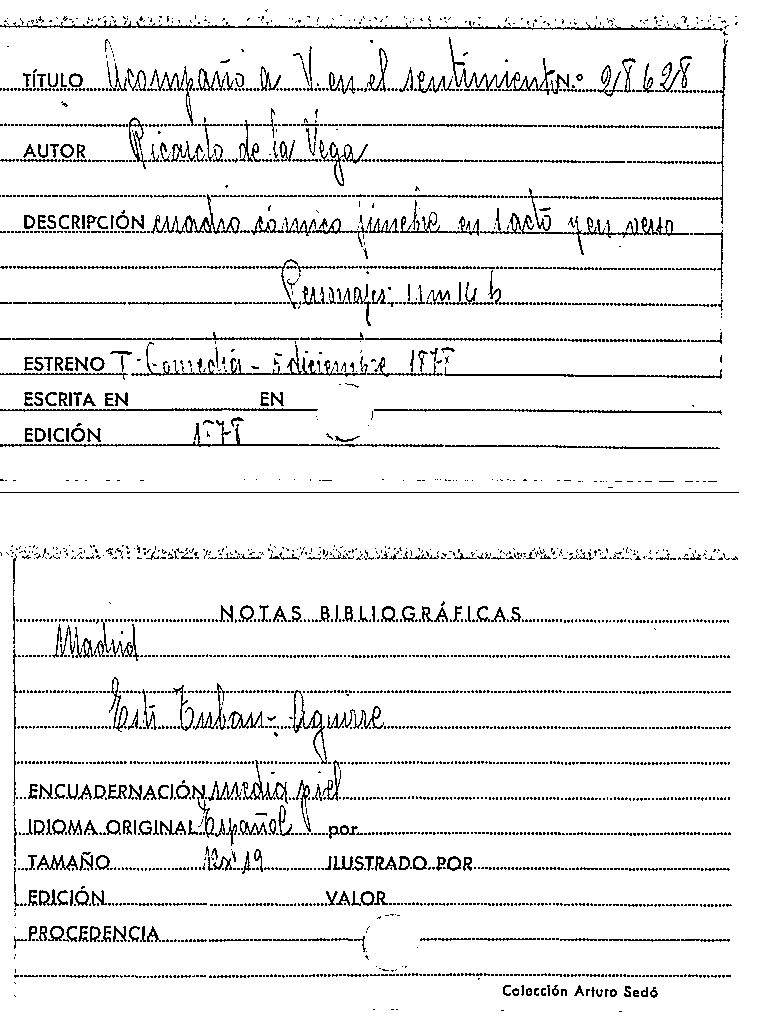 TÍTULO Acompaño a V. en el sentimiento N.º 28628
AUTOR Ricardo de la Vega
DESCRIPCIÓN cuadro cómico fúnebre en 1 acto y en verso
Personajes: 11 m 14 h
ESTRENO T. Comedia - 5 diciembre 1878
ESCRITA EN EN
EDICIÓN 1878
NOTAS BIBLIOGRÁFICAS
Madrid
Aguirre
ENCUADERNACIÓN media piel
IDIOMA ORIGINAL Español por
TAMAÑO 12x19 ILUSTRADO POR
EDICIÓN VALOR
PROCEDENCIA
Colección Arturo Sedó